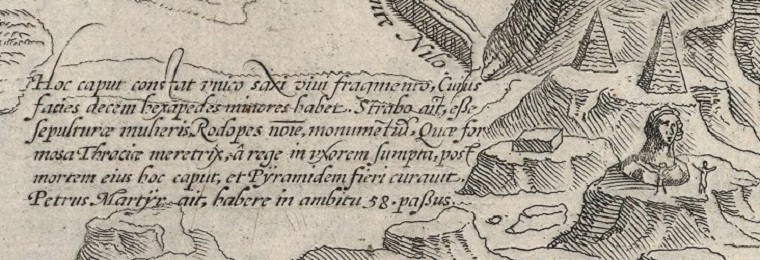 nte Nilo
Hoc caput constat vnico saxi viui fragmento, Cuius
facies decem hexapedes minores habet. Strabo ait, esse
sepulturæ mulieris Rodopes noīe, monumētũ, Quæ for
mosa Thraciæ meretrix, â rege in vxorem sumpta, post
mortem eius hoc caput, et Pÿramidem fieri curauit.
Petrus Martÿr ait, habere in ambitu 58. paßus.